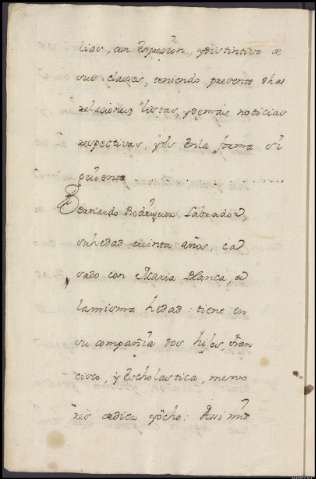 cias, con expreſion, y distintivo de
sus clases, teniendo presente dhas
relaciones Listas, y demás noticias
respectivas, y es enla forma si
guiente
Bernardo Rodriguez Labrador,
su hedad treinta años, ca
sado con Maria Blanca, de
lamisma hedad: tiene en
su compañia dos hijos Fran
cisco, y Escholastica, meno
res de diez y ocho: